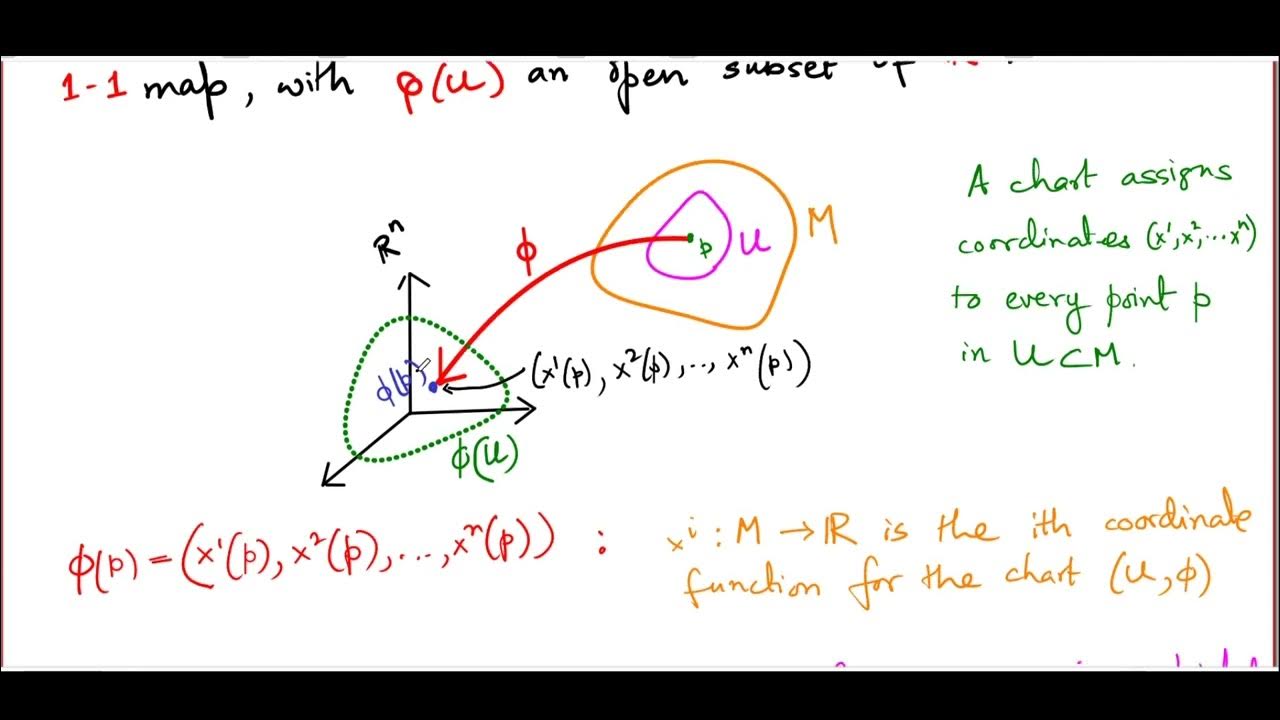 1-1 map, with φ(U) an open subset of
A chart assigns
coordinates (x¹, x², ... xⁿ)
to every point p
in U ⊂ M.
ℝⁿ
ϕ
p
U
M
ϕ(p)
(x¹(p), x²(p), .., xⁿ(p))
ϕ(U)
ϕ(p) = (x¹(p), x²(p), ..., xⁿ(p)) :
xⁱ : M → ℝ is the ith coordinate
function for the chart (U, ϕ)